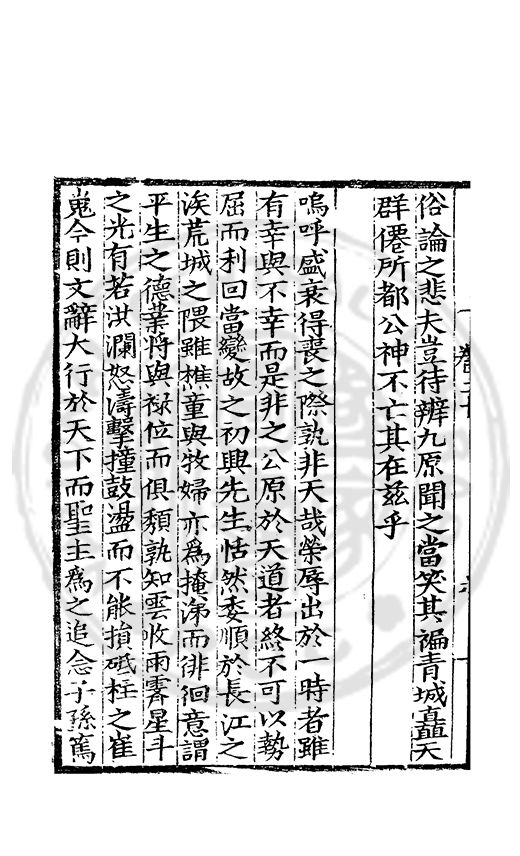 俗論之悲夫豈待辨九原聞之當笑其褊青城矗天
群僊所都公神不亡其在茲乎
嗚呼盛衰得喪之際孰非天哉榮辱出於一時者雖
有幸與不幸而是非之公原於天道者終不可以勢
屈而利回當變故之初興先生恬然委順於長江之
涘荒城之隈雖樵童與牧婦亦為掩涕而徘徊意謂
平生之德業將與祿位而俱頹孰知雲收雨霽星斗
之光有若洪瀾怒濤擊撞鼓盪而不能損砥柱之崔
嵬今則文辭大行於天下而聖主為之追念子孫篤
卷二十